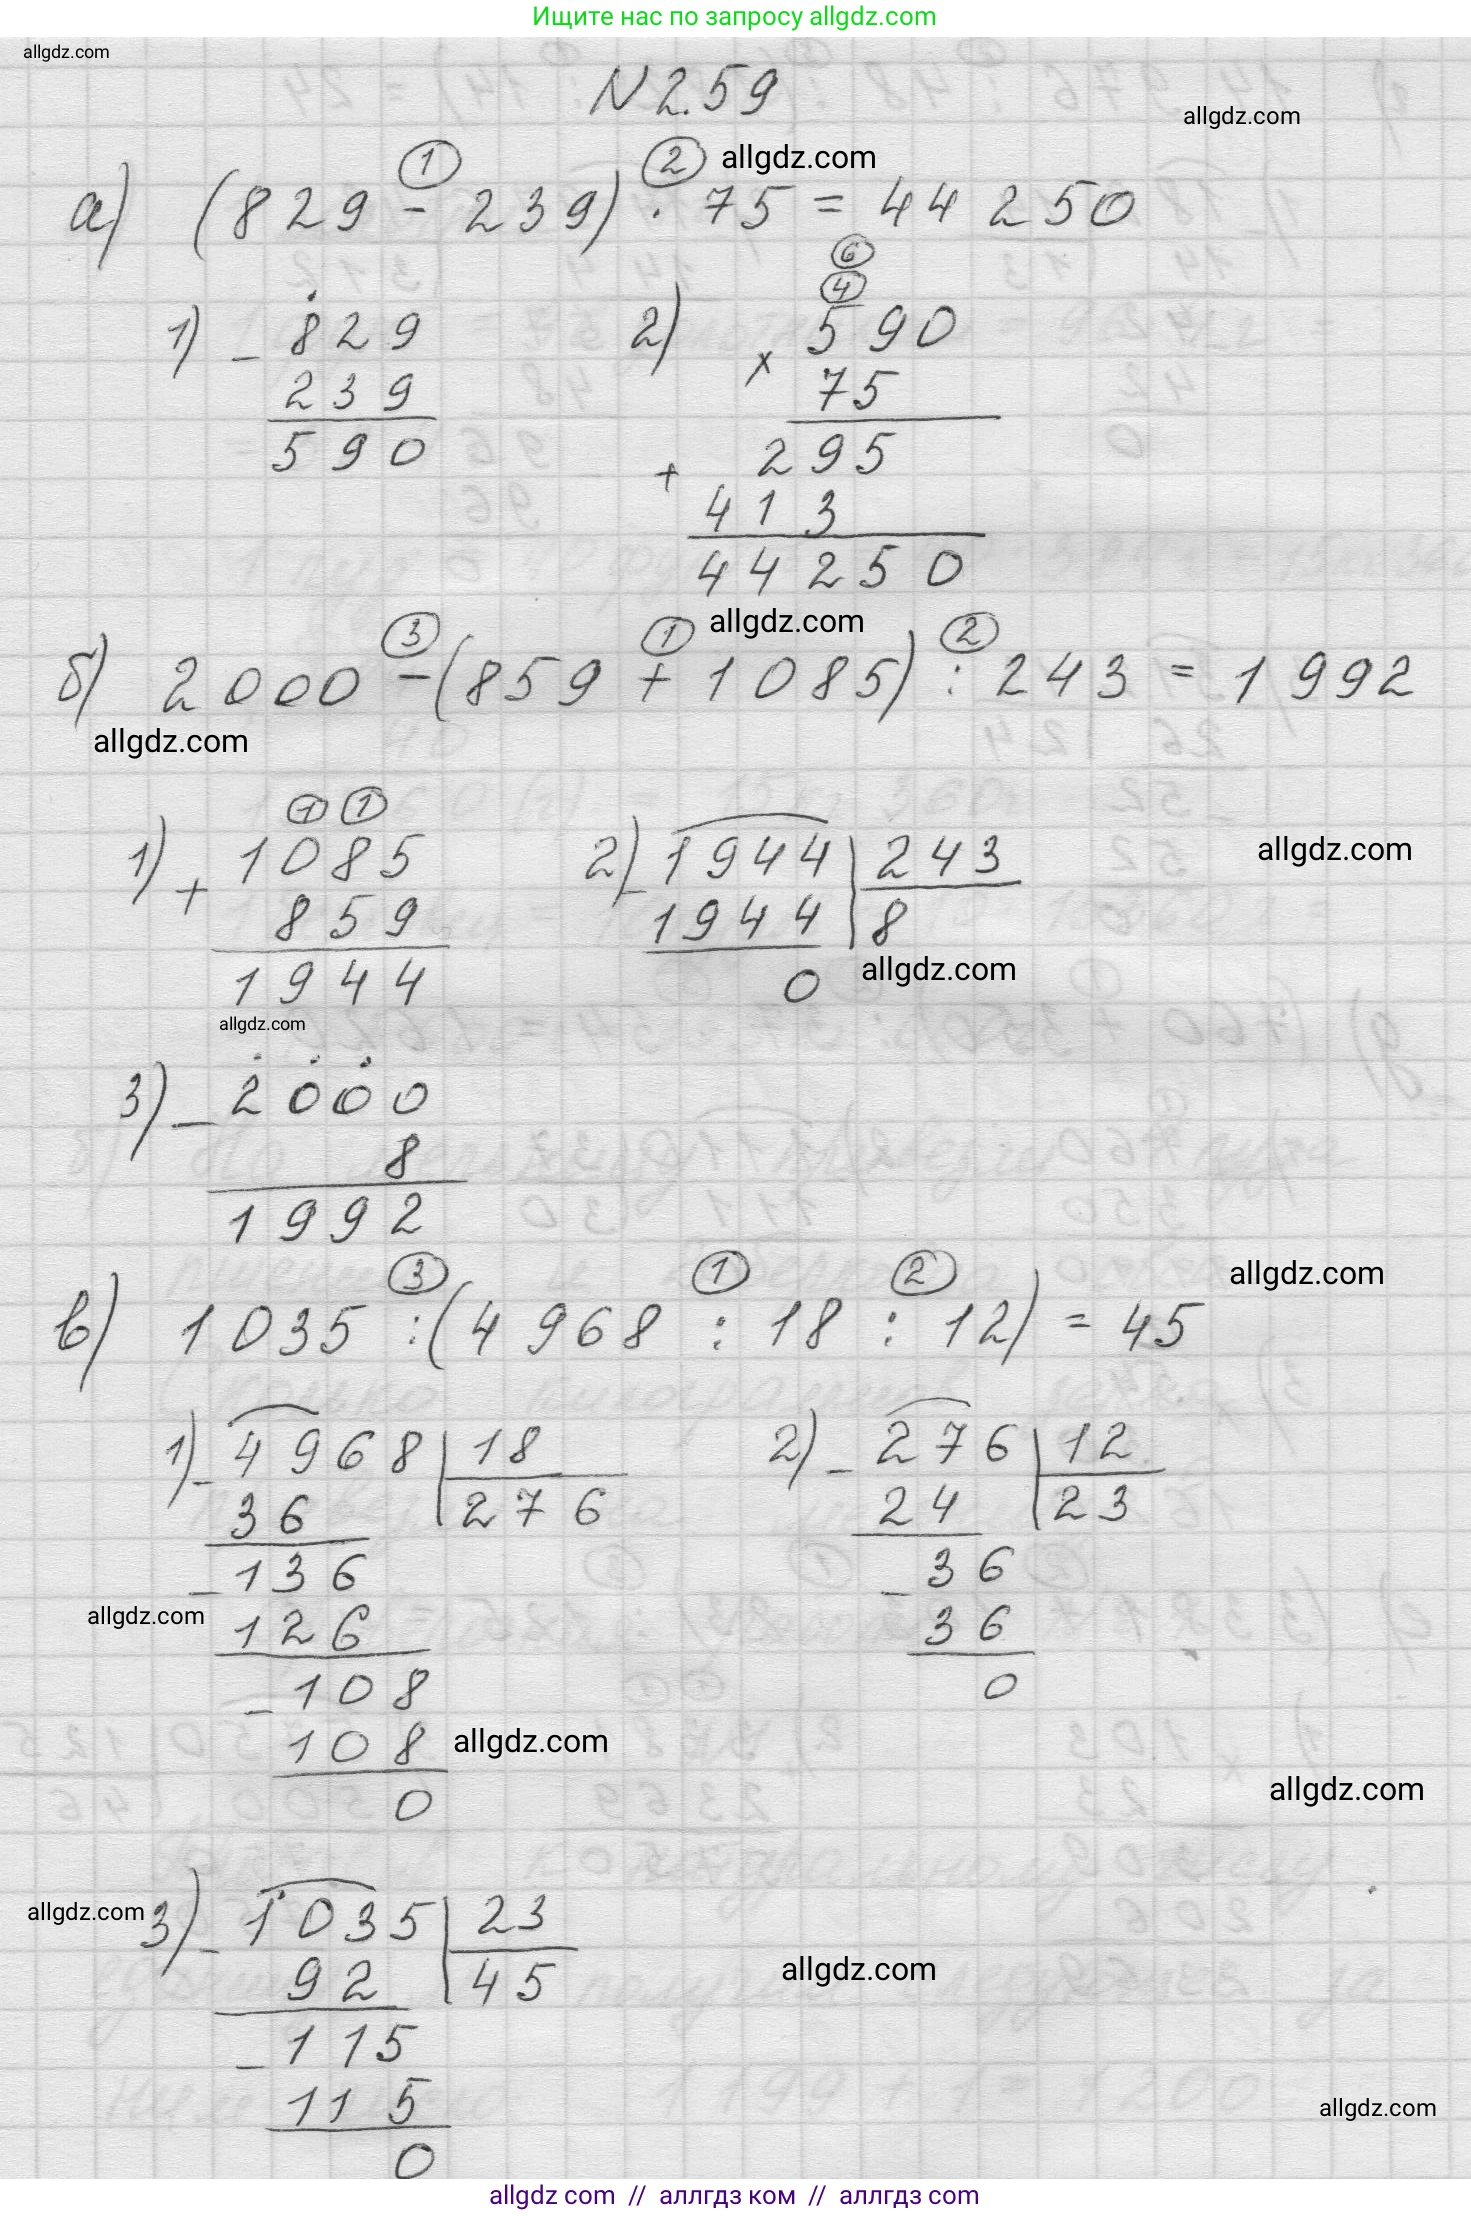 Ищите нас по запросу allgdz.com
allgdz.com
N 2.59
allgdz.com
① ② allgdz.com
а) (829 - 239) · 75 = 44 250
⑥
④
1) - 829 2) × 590
239 75
590 + 295
413
44250
allgdz.com
③ ① ②
б) 2000 - (859 + 1085) : 243 = 1992
allgdz.com
① ①
1) + 1085 2) - 1944 | 243 allgdz.com
859 1944 | 8
1944 0 allgdz.com
allgdz.com
3) - 2000
8
1992
③ ① ② allgdz.com
в) 1035 : (4968 : 18 : 12) = 45
1) - 4968 | 18 2) - 276 | 12
36 | 276 24 | 23
- 136 - 36
allgdz.com 126 36
- 108 0
108 allgdz.com
allgdz.com
0
allgdz.com 3) - 1035 | 23
92 | 45 allgdz.com
- 115
115 allgdz.com
0
allgdz com // аллгдз ком // allгдз com